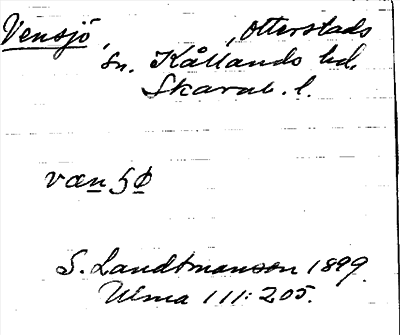 Vensjö, , Otterstads
sn. Kållands hd.
Skarab. l.
væn ʃø
S. Landtmanson 1899.
Ulma 111:205.